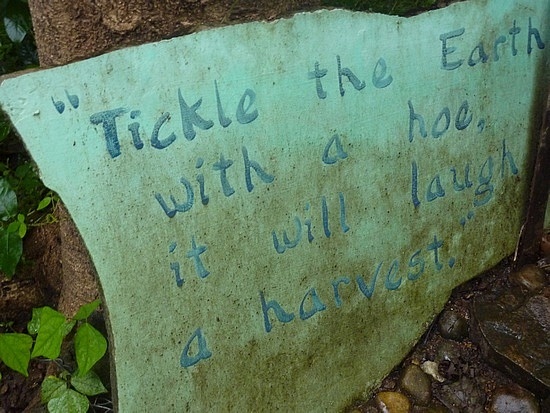 "Tickle the Earth
with a hoe,
it will laugh
a harvest."